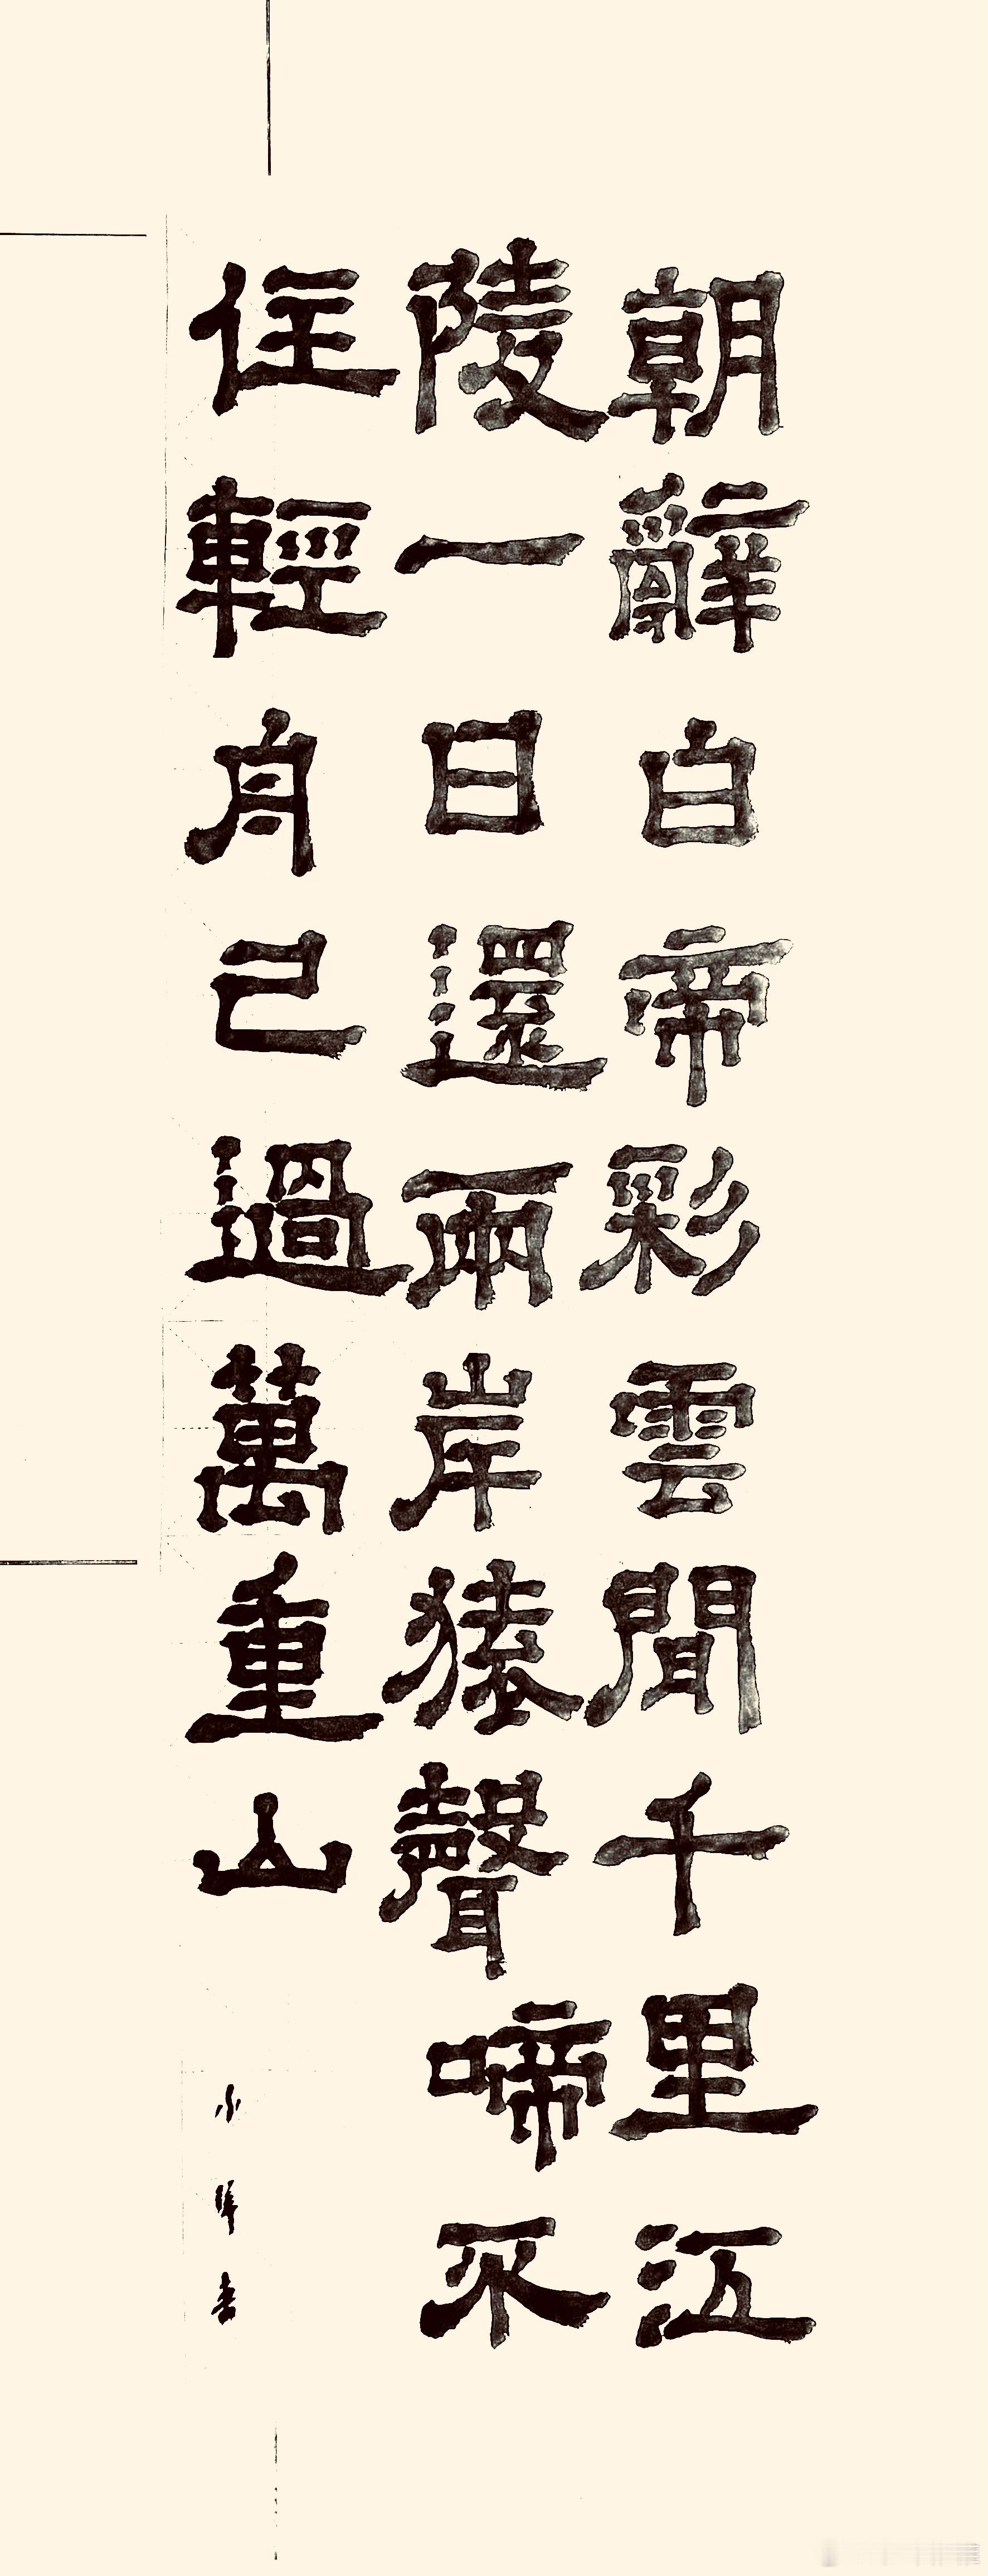 朝辭白帝彩雲聞千里江
陵一日還兩岸猿聲啼不
住輕舟已過萬重山